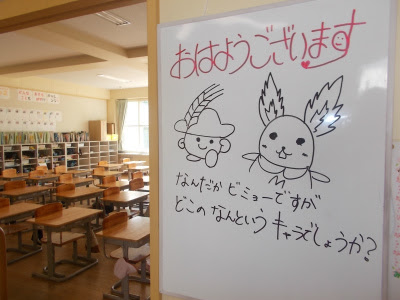 おはようございます
なんだか ビミョーですが
どこの なんという キャラでしょうか?